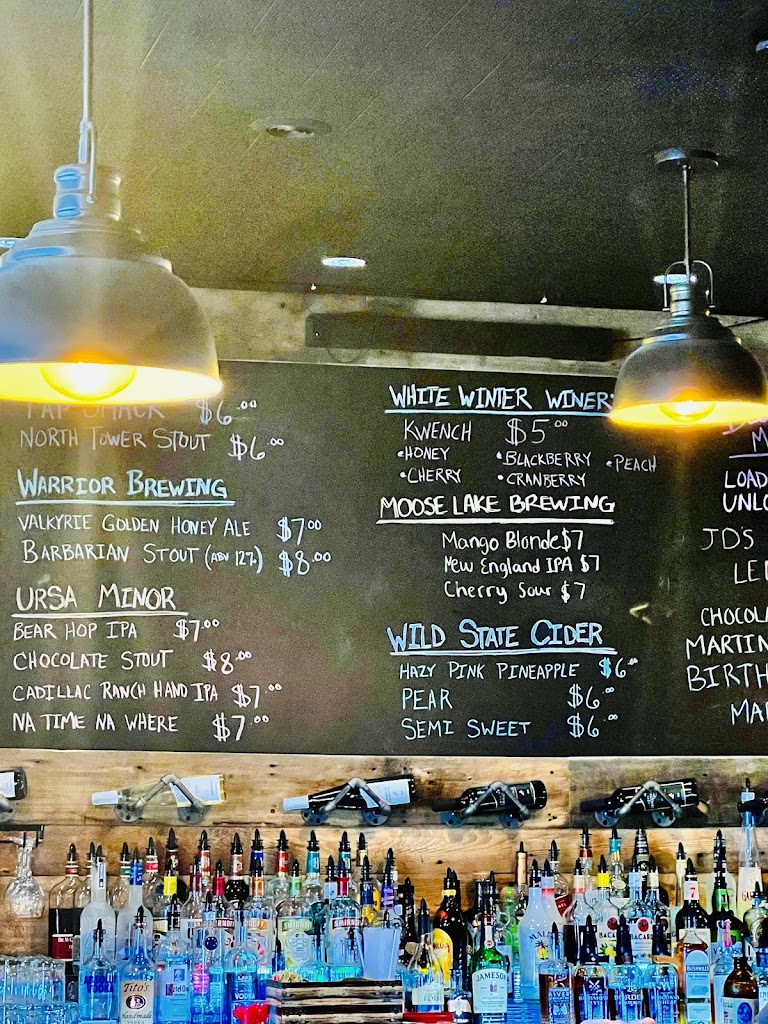 TAP SHACK $6.00
NORTH TOWER STOUT $6.00
WARRIOR BREWING
VALKYRIE GOLDEN HONEY ALE $7.00
BARBARIAN STOUT (ABV 12%) $8.00
URSA MINOR
BEAR HOP IPA $7.00
CHOCOLATE STOUT $8.00
CADILLAC RANCH HAND IPA $7.00
NA TIME NA WHERE $7.00
WHITE WINTER WINER
KWENCH $5.00
•HONEY •BLACKBERRY •PEACH
•CHERRY •CRANBERRY
MOOSE LAKE BREWING
Mango Blonde $7
New England IPA $7
Cherry Sour $7
WILD STATE CIDER
HAZY PINK PINEAPPLE $6.00
PEAR $6.00
SEMI SWEET $6.00
LOAD
UNLO
JD'S
LE
CHOCOLA
MARTIN
BIRTH
MAR
SMIRNOFF
SMIRNOFF
BACARDI
ABSOLUT
VODKA
Tito's
Handmade
Ketel One
VODKA
JAMESON
BUSHMILLS